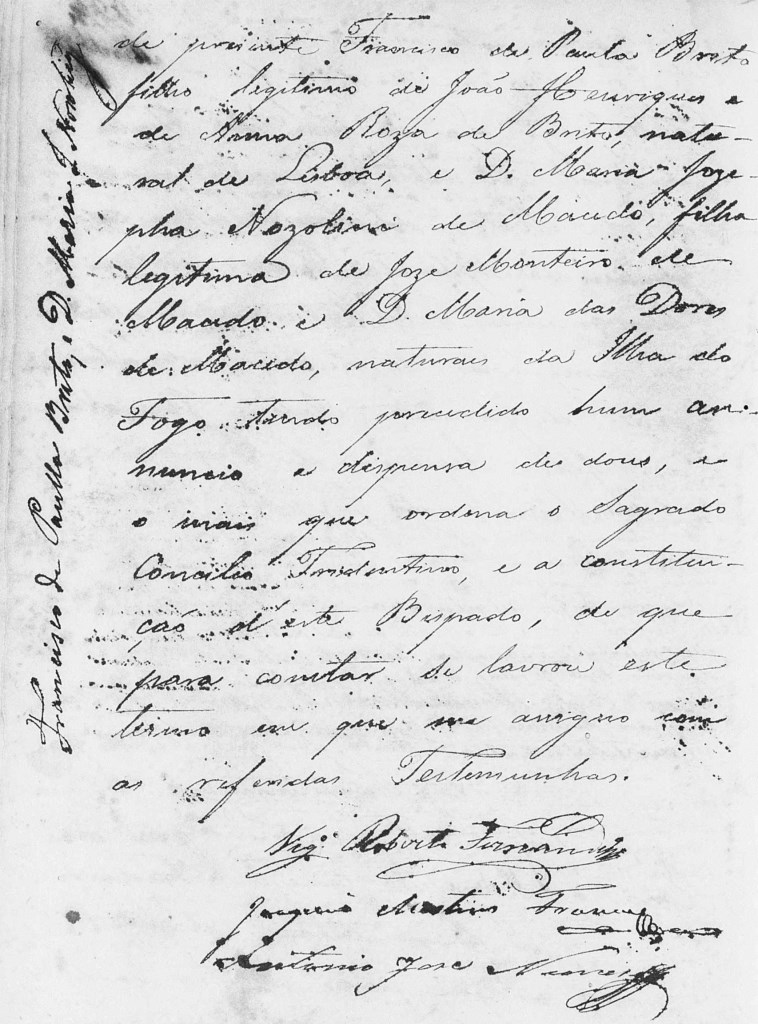 de presente Francisco de Paula Brito
filho legitimo de João Henriques e
de Anna Roza de Brito, natu-
ral de Lisboa, e D. Maria Joze-
pha Nozolini de Macedo, filha
legitima de Joze Monteiro de
Macedo e D. Maria das Dores
de Macedo, naturais da Ilha do
Fogo tendo precedido hum an-
nuncio e dispensa de dous, e
o mais que ordena o Sagrado
Concilio Tridentino, e a constitui-
ção d'este Bispado, de que
para constar se lavrou este
termo em que me assigno com
as referidas Testemunhas.
Vigº Roberto Fernandes
Martins
Antonio Jose Nunes
Francisco de Paulla Brito, e D. Maria J.